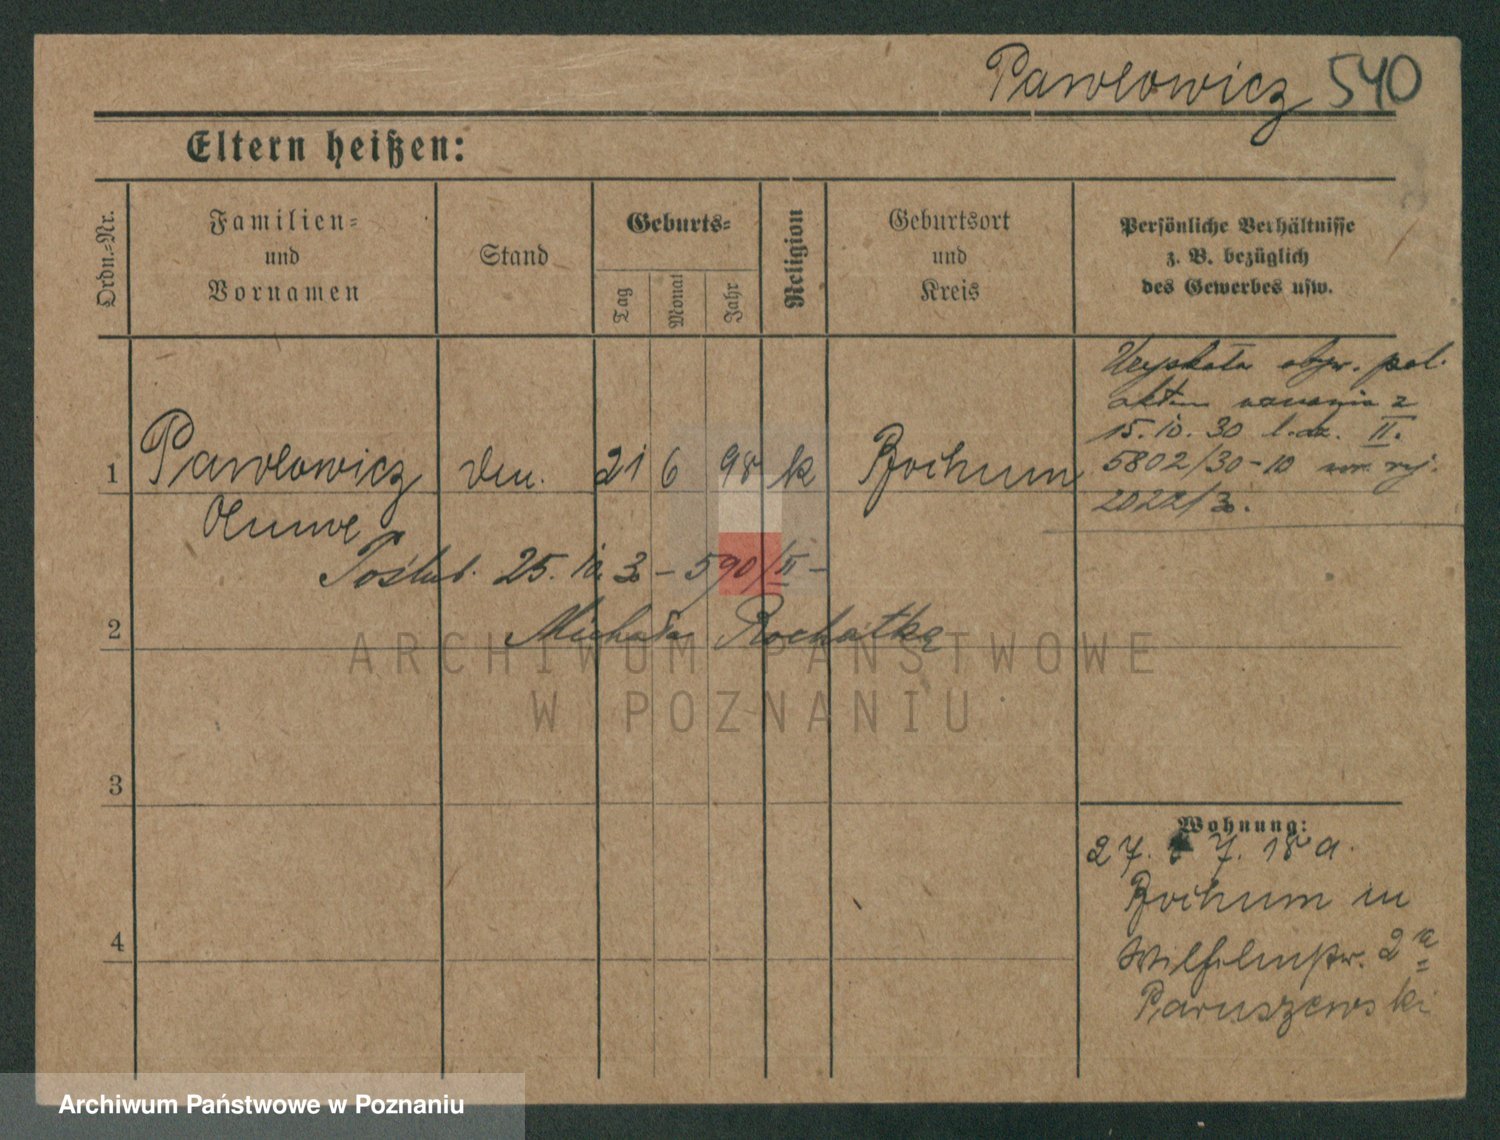 Pawlowicz 540
Eltern heißen:
Ordn.-Nr.
Familien-
und
Vornamen
Stand
Geburts-
Tag
Monat
Jahr
Religion
Geburtsort
und
Kreis
Persönliche Verhältnisse
z. B. bezüglich
des Gewerbes usw.
1 Pawlowicz 21 6 98 k Bochum
Poślub. 25. 10. 30 - 590/II -
2 Michała Rochatkę
3
4
Uzyskała obyw. pol.
aktem nadania z
15. 10. 30 l. dz. II.
5802/30-10 rej.
2022/30.
Wohnung:
27. 7. 18 a.
Bochum in
Wilhelmstr. 2a
Paruszewski
ARCHIWUM PAŃSTWOWE
W POZNANIU
Archiwum Państwowe w Poznaniu